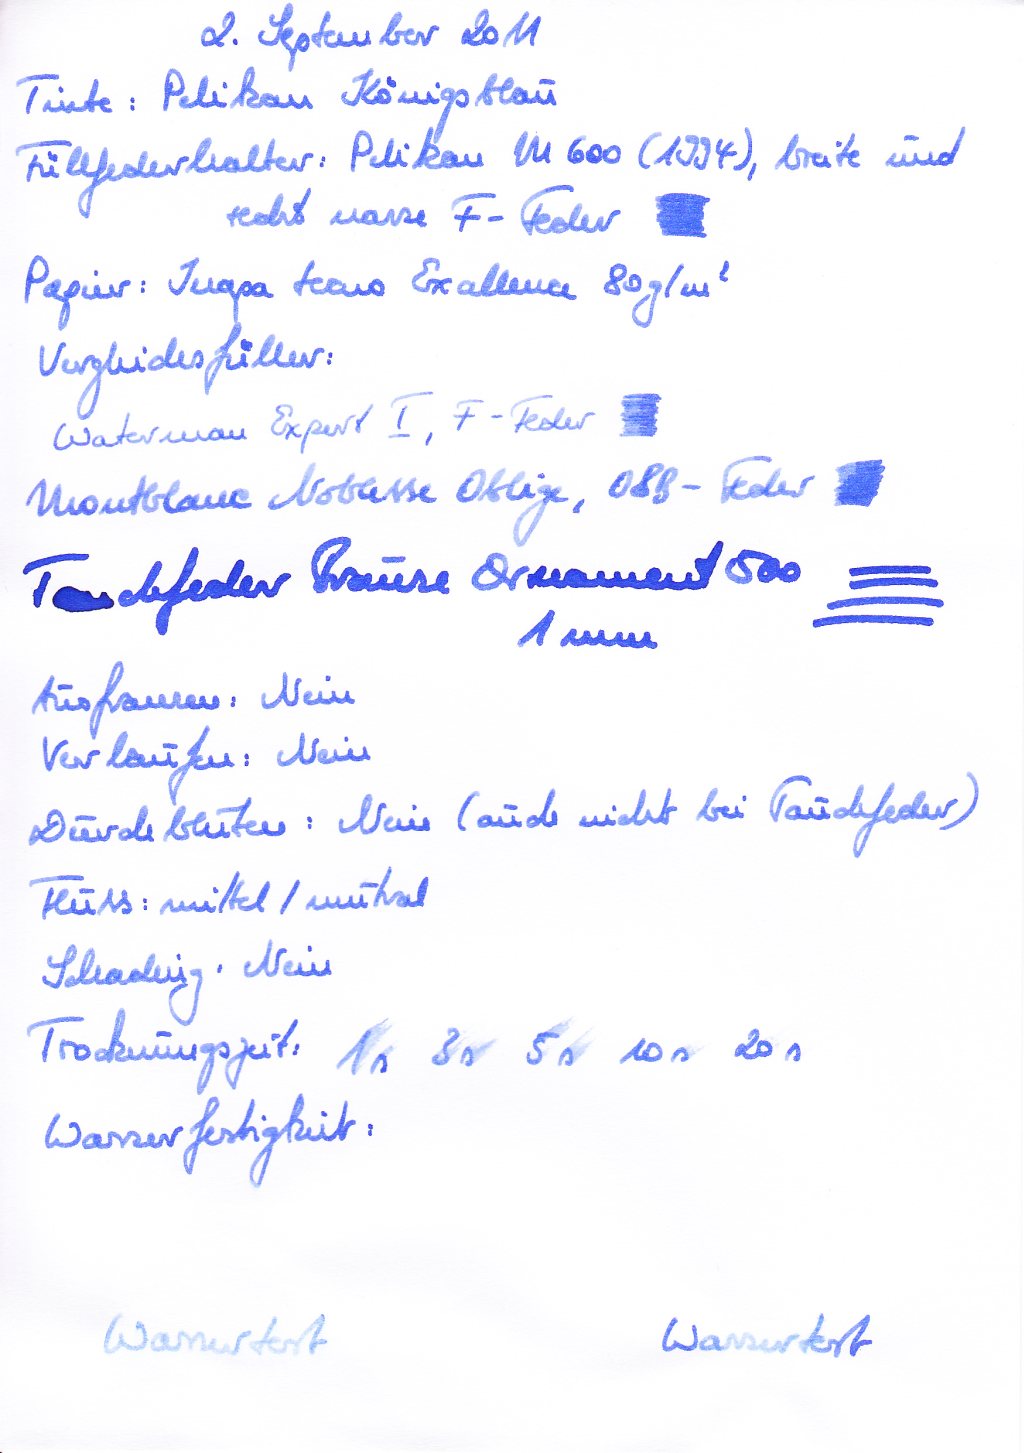 2. September 2011
Tinte: Pelikan Königsblau
Füllfederhalter: Pelikan M 600 (1994), breite und
recht nasse F-Feder
Papier: Inapa tecno Excellence 80g/m²
Vergleichsfüller:
Waterman Expert I, F-Feder
Montblanc Noblesse Oblige, OBB-Feder
Tauchfeder Brause Ornament 500
1 mm
Ausfransen: Nein
Verlaufen: Nein
Durchbluten: Nein (auch nicht bei Tauchfeder)
Fluss: mittel/neutral
Schading: Nein
Trocknungszeit: 1s 3s 5s 10s 20s
Wasserfestigkeit:
Wassertest Wassertest